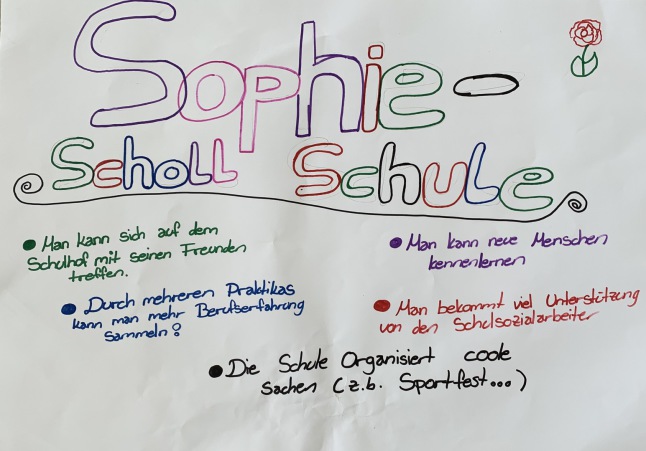 Sophie-
Scholl Schule
Man kann sich auf dem
Schulhof mit seinen Freunden
treffen.
Man kann neue Menschen
kennenlernen
Durch mehreren Praktikas
kann man mehr Berufserfahrung
sammeln?
Man bekommt viel Unterstützung
von den Schulsozialarbeiter
Die Schule Organisiert coole
sachen (z.b. Sportfest...)